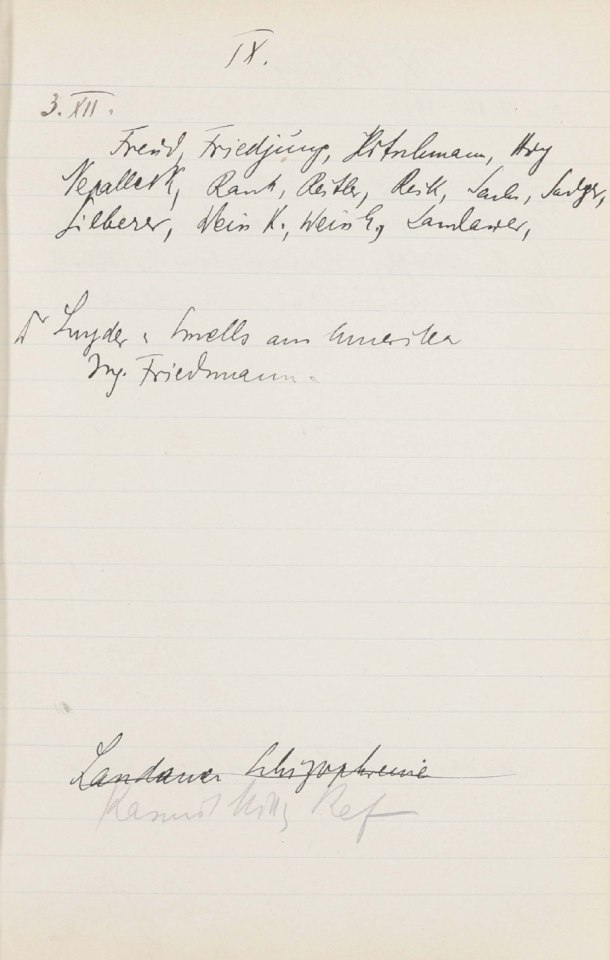 IX.
3. XII.
Freud, Friedjung, Hitschmann, Hug
Nepalleck, Rank, Reitler, Reik, Sachs, Sadger,
Silberer, Weiss K., Weiss E., Landauer,
Dr Snyder u. aus Amerika
Ing. Friedmann
Landauer Schizophrenie
Ref